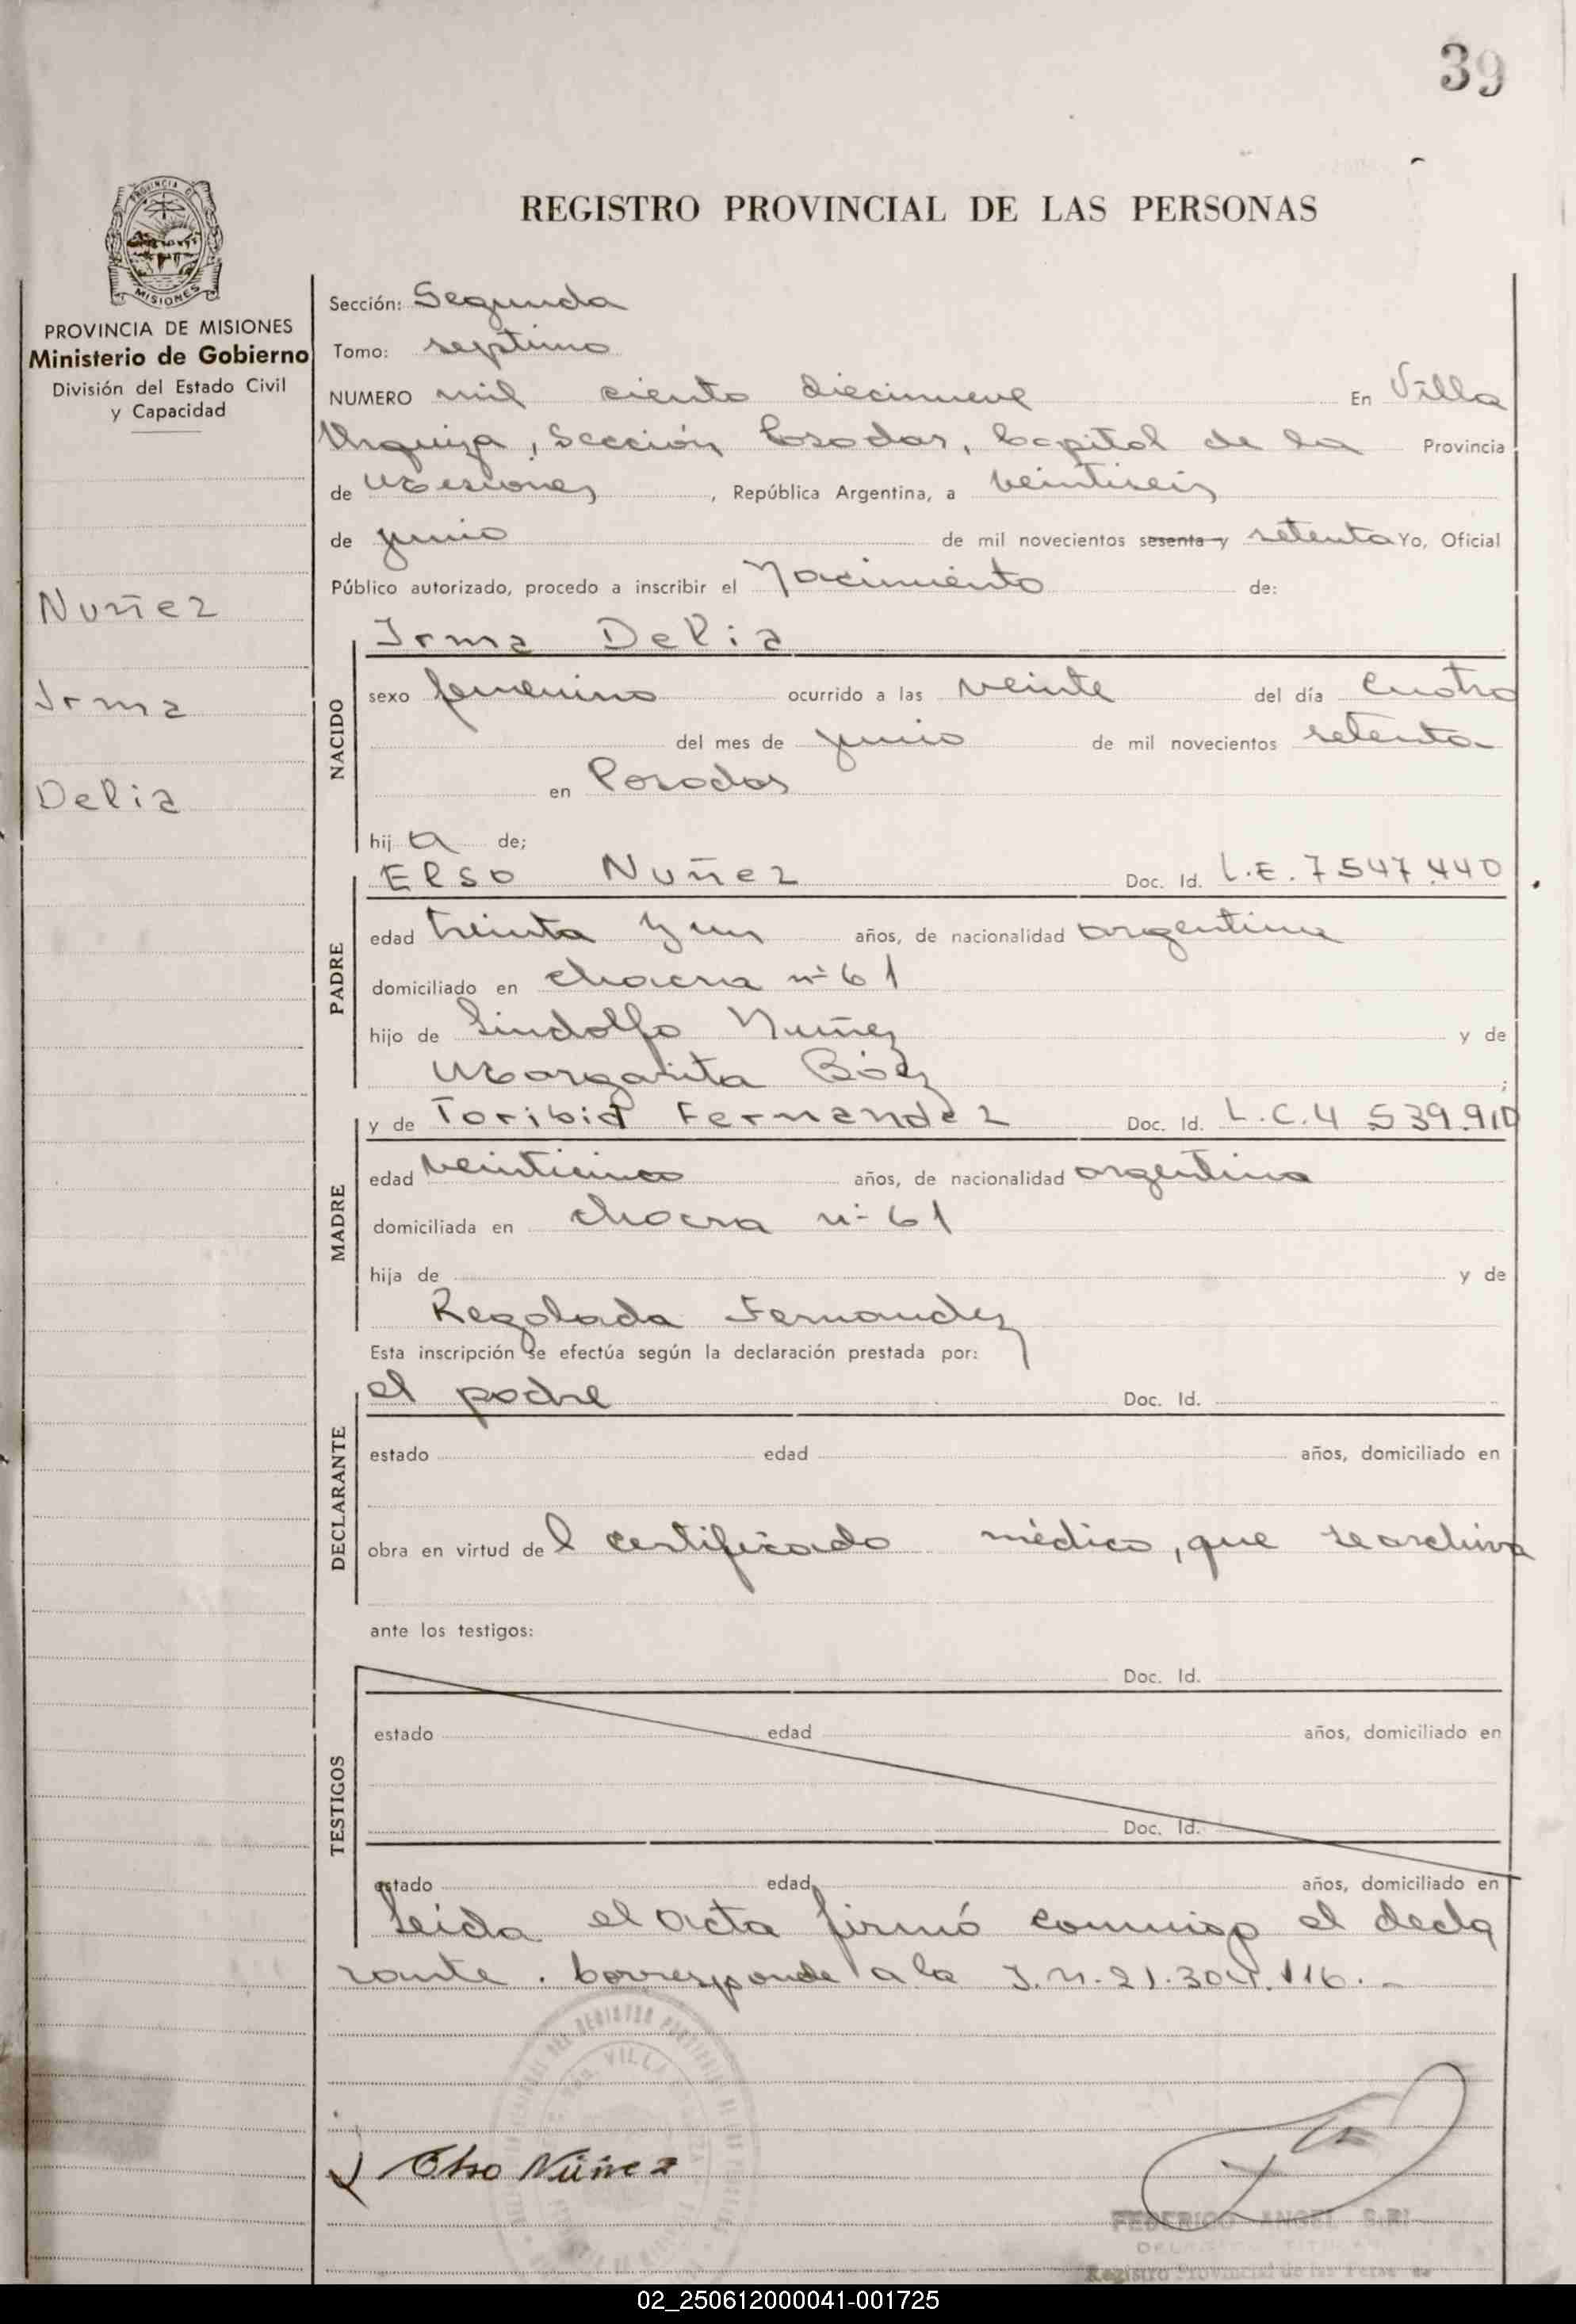 39
REGISTRO PROVINCIAL DE LAS PERSONAS
PROVINCIA DE
MISIONES
PROVINCIA DE MISIONES
Ministerio de Gobierno
División del Estado Civil
y Capacidad
Nuñez
Irma
Delia
Sección: Segunda
Tomo: septimo
NUMERO mil ciento diecinueve En Villa
Urquiza, Sección Posadas, Capital de la Provincia
de Misiones, República Argentina, a veintiseis
de junio de mil novecientos sesenta y setenta Yo, Oficial
Público autorizado, procedo a inscribir el Nacimiento de:
NACIDO
Irma Delia
sexo femenino ocurrido a las veinte del día cuatro
del mes de junio de mil novecientos setenta
en Posadas
hij a de;
PADRE
Elso Nuñez Doc. Id. L.E. 7547.440
edad treinta y un años, de nacionalidad argentina
domiciliado en chacra nº 61
hijo de Lindolfo Nuñez y de
Margarita Báez ;
MADRE
y de Toribia Fernandez Doc. Id. L.C.4 539.910
edad veinticinco años, de nacionalidad argentina
domiciliada en chacra nº 61
hija de y de
Regalada Fernandez
Esta inscripción se efectúa según la declaración prestada por:
DECLARANTE
el padre Doc. Id.
estado edad años, domiciliado en
obra en virtud del certificado médico, que se archiva
ante los testigos:
TESTIGOS
Doc. Id.
estado edad años, domiciliado en
Doc. Id.
estado edad años, domiciliado en
Leída el acta firmó conmigo el decla
rante. Corresponde a la I.N. 21.304.116.-
Elso Núñez
FEDERICO ANGEL
Registro Provincial de las
02_250612000041-001725